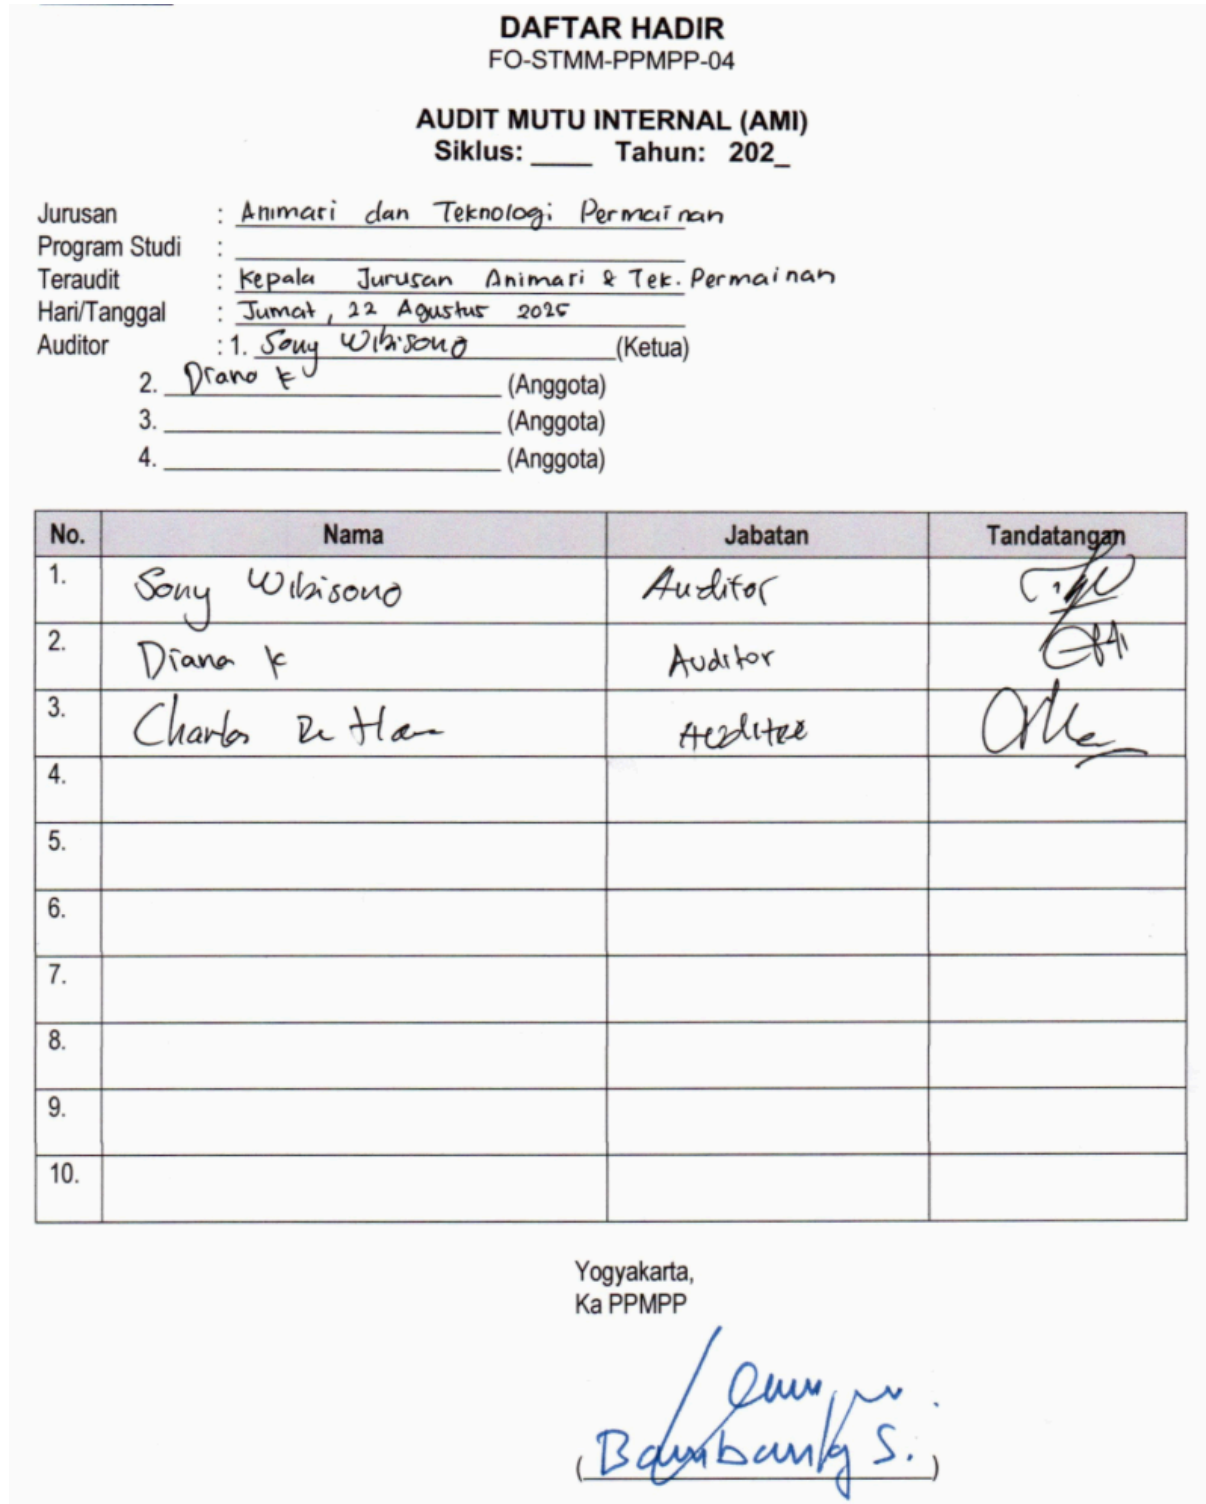 DAFTAR HADIR
FO-STMM-PPMPP-04
AUDIT MUTU INTERNAL (AMI)
Siklus: ____ Tahun: 202_
Jurusan : Animasi dan Teknologi Permainan
Program Studi :
Teraudit : Kepala Jurusan Animasi & Tek. Permainan
Hari/Tanggal : Jumat, 22 Agustus 2025
Auditor : 1. Sony Wibisono (Ketua)
2. Diana K (Anggota)
3. (Anggota)
4. (Anggota)
No. Nama Jabatan Tandatangan
1. Sony Wibisono Auditor
2. Diana K Auditor
3. Charles Auditee
4.
5.
6.
7.
8.
9.
10.
Yogyakarta,
Ka PPMPP
(Bambang S.)